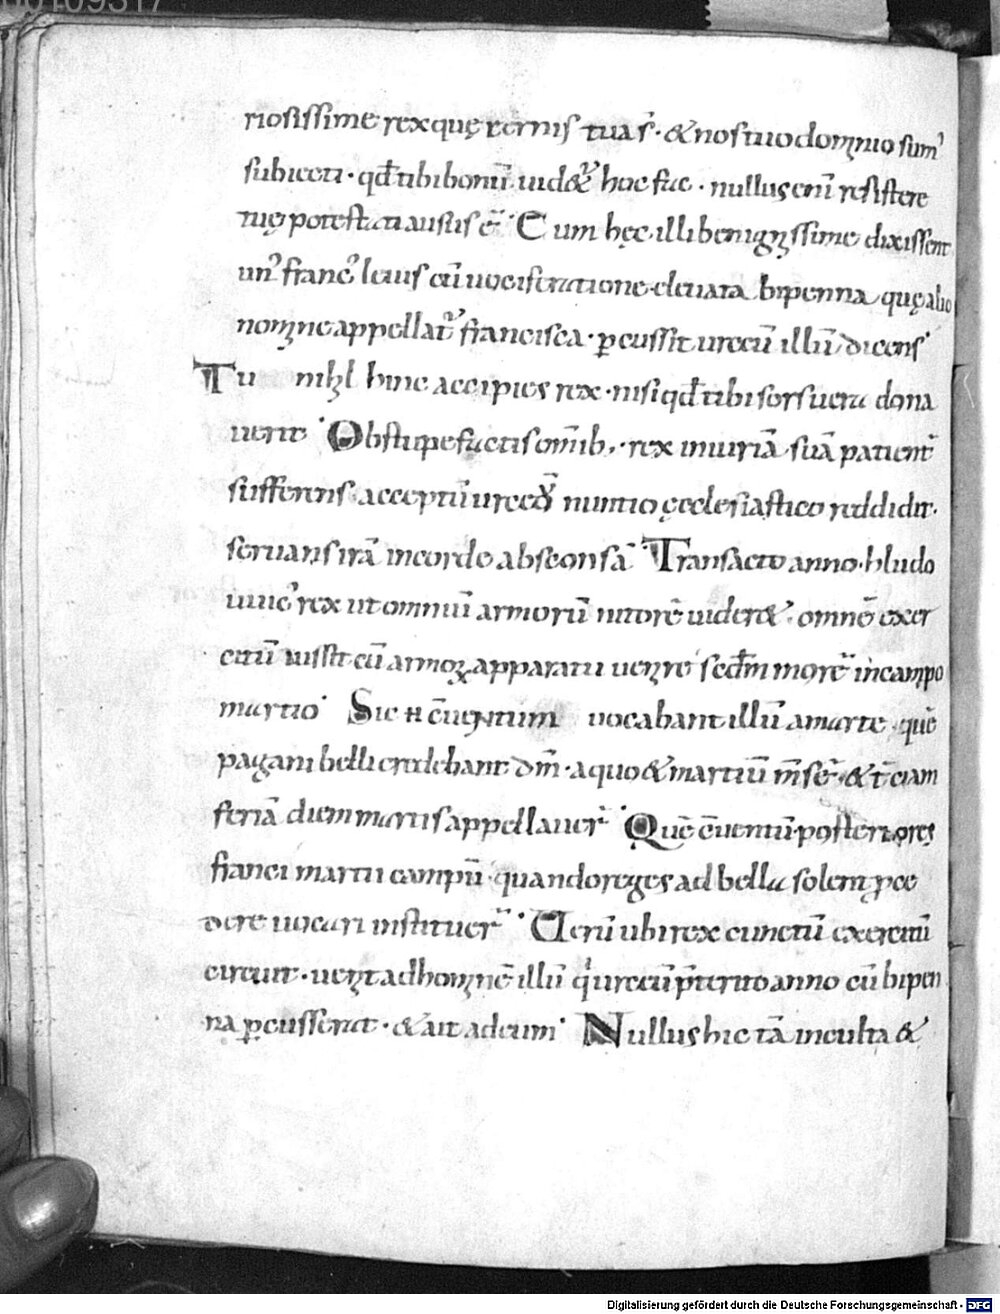 riosissime rex quę cernis tua s̄· & nos tuo dominio sum᾽
subiecti· qd̄ tibi bonū uidet᷑ hoc fac· nullus enī resistere
tuę potestati ausus ē᷑ Cum hęc illi benignissime dixissent
un᾽ franc᾽ leuis cū uociferatione eleuata bipenna quę alio
nomine appellat᷑ francisca· ꝑcussit urceū illū dicens
Tu nihil hinc accipies rex· nisi qd̄ tibi sors uera dona
uerit Obstupefactis omīb,· rex iniuriā suā patient᷑
sufferens· acceptū urceū nuntio ęcclesiastico reddidit·
seruans irā in corde absconsā Transacto anno· hludo
uuic᾽ rex ut omniū armorū nitorē uideret· omnē exer
citū iussit cū armoꝝ apparatu uenire scd̄m morē in campo
martio Sic conuentum uocabant illū a marte quē
pagani belli credebant dm̄· a quo & martiū m̄sē· & t̄ciam
feriā diem martis appellauer᷑ Quē cuentū posteriores
franci martii campū· quando reges ad bella solent ꝓce
dere uocari instituer᷑ Uerū ubi rex cunctū exercitū
circuit· uenit ad hominē illū qui urceū p̄terito anno cū bipen
na ꝑcusserat· & ait ad eum Nullus hic tā inculta &
Digitalisierung gefördert durch die Deutsche Forschungsgemeinschaft - DFG